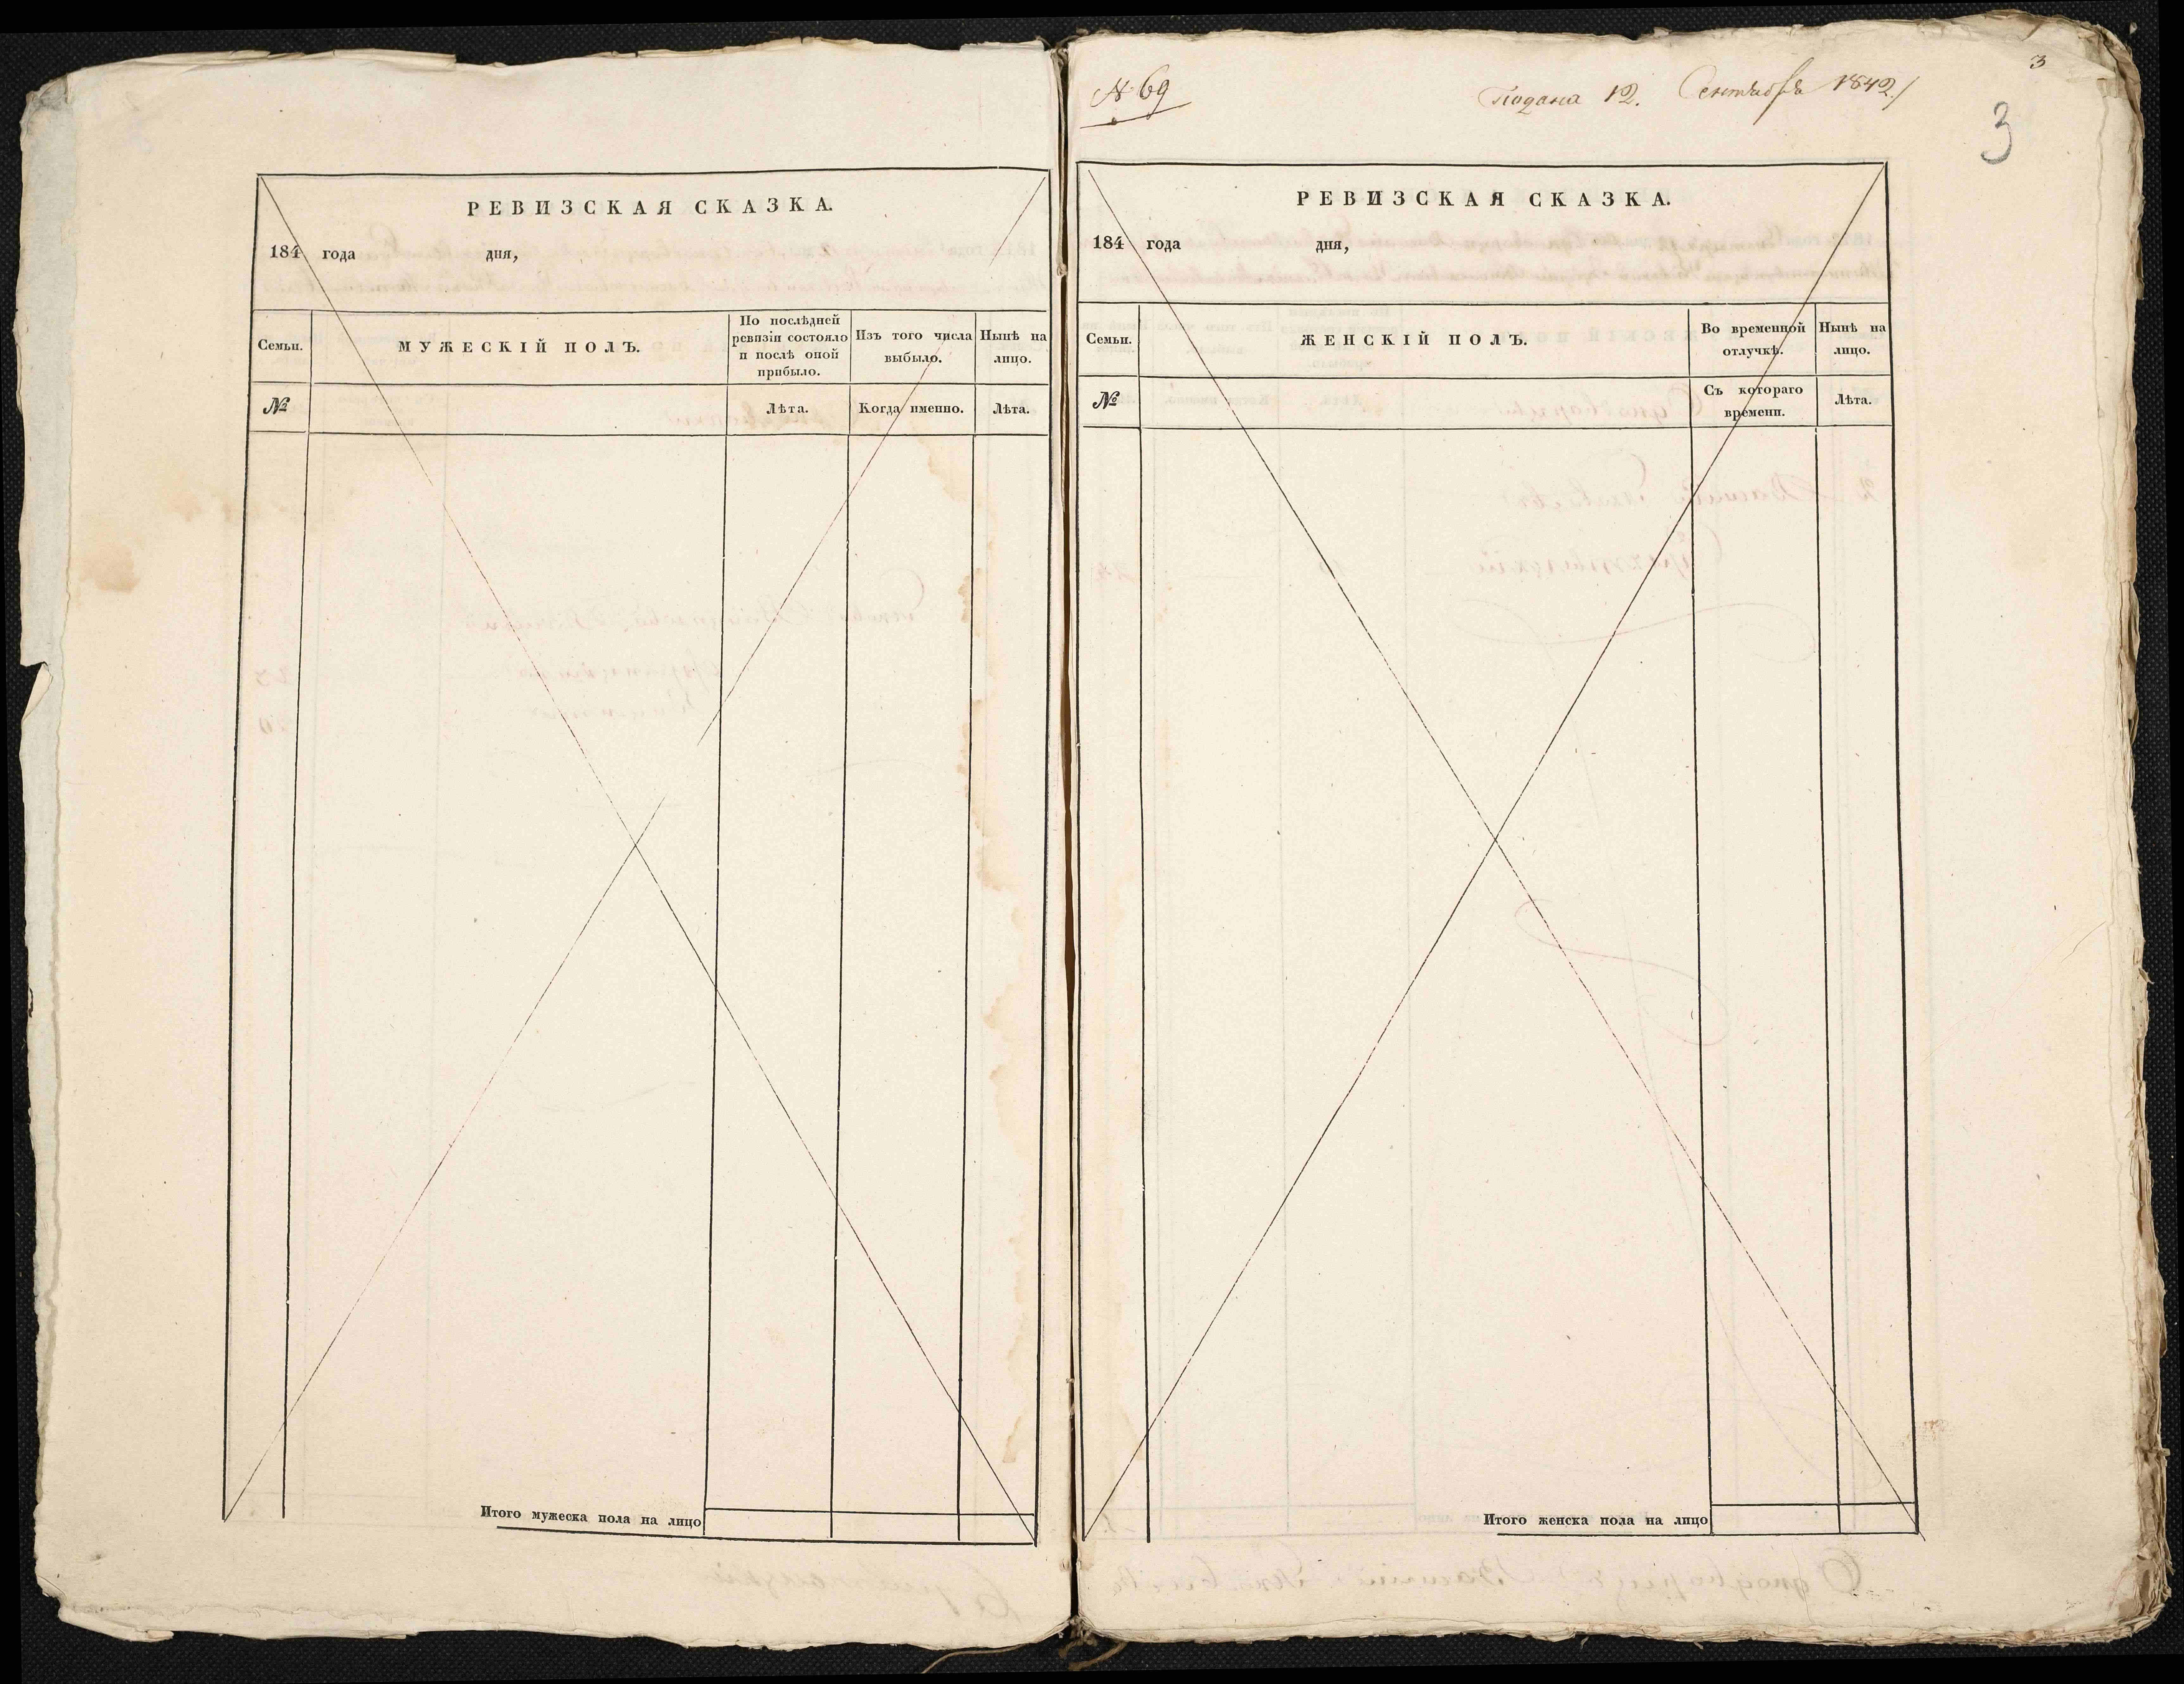 РЕВИЗСКАЯ СКАЗКА.
184 года дня,
Семьи.
МУЖЕСКІЙ ПОЛЪ.
По послѣдней
ревизіи состояло
и послѣ оной
прибыло.
Изъ того числа
выбыло.
Нынѣ на
лицо.
№
Лѣта.
Когда именно.
Лѣта.
Итого мужеска пола на лицо
3
№ 69
Подана 12. Сентября 1842/
3
РЕВИЗСКАЯ СКАЗКА.
184 года дня,
Семьи.
ЖЕНСКІЙ ПОЛЪ.
Во временной
отлучкѣ.
Нынѣ на
лицо.
№
Съ котораго
времени.
Лѣта.
Итого женска пола на лицо